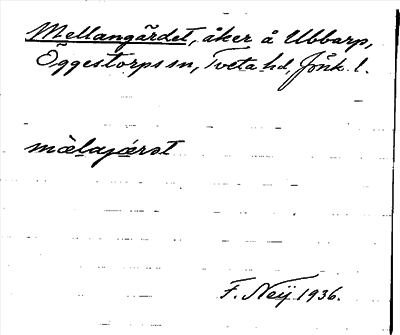 Mellangärdet, åker å Ubbarp,
Öggestorps sn, Tveta hd, Jönk. l.
mälajärət
F. Neij 1936.